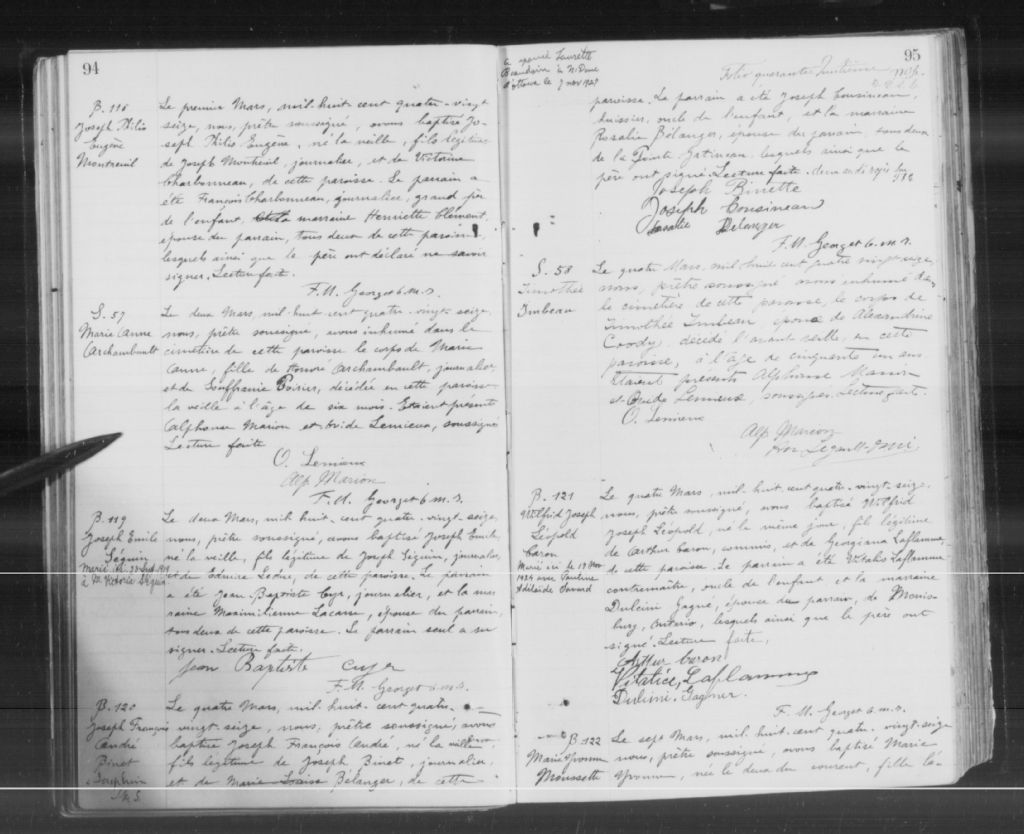 94
B. 116
Joseph Philio
Eugène
Montreuil
Le premier Mars, mil-huit cent quatre-vingt
seize, nous, prêtre soussigné, avons baptisé Jo-
seph Philio Eugène, né la veille, fils légitime
de Joseph Montreuil, journalier, et de Victorine
Charbonneau, de cette paroisse. Le parrain a
été François Charbonneau, journalier, grand père
de l'enfant, et la marraine Henriette Clément,
épouse du parrain, tous deux de cette paroisse,
lesquels ainsi que le père ont déclaré ne savoir
signer. Lecture faite.
F. M. Georget c. m. s.
S. 57
Marie Anne
Archambault
Le deux Mars, mil-huit-cent quatre-vingt-seize,
nous, prêtre soussigné, avons inhumé dans le
cimetière de cette paroisse le corps de Marie
Anne, fille de Honoré Archambault, journalier
et de Souffranie Poirier, décédée en cette paroisse
la veille à l'âge de six mois. Etaient présents
Alphonse Marion et Ovide Lemieux, soussignés
Lecture faite
O. Lemieux
Alp. Marion
F. M. Georget c. m. s.
B. 119
Joseph Emile
Séguin
Marié
à M. Victoria Séguin
Le deux Mars, mil-huit-cent quatre-vingt-seize,
nous, prêtre soussigné, avons baptisé Joseph Emile,
né la veille, fils légitime de Joseph Séguin, journalier,
et de Edwire Leduc, de cette paroisse. Le parrain
a été Jean-Baptiste Cyr, journalier, et la mar
raine Maximilienne Lacasse, épouse du parrain,
tous deux de cette paroisse. Le parrain seul a su
signer. Lecture faite.
Jean Baptiste Cuyer
F. M. Georget c. m. s.
B. 120
Joseph François
André
Binet
Le quatre Mars, mil-huit-cent quatre-
vingt-seize, nous, prêtre soussigné, avons
baptisé Joseph François André, né la veille,
fils légitime de Joseph Binet, journalier,
et de Marie Louise Bélanger, de cette
95
a épousé Laurette
Beaudoin à N. Dame
d'Ottawa le 7 nov 1927
Folio quarante huitième
paroisse. Le parrain a été Joseph Cousineau,
huissier, oncle de l'enfant, et la marraine
Rosalie Bélanger, épouse du parrain, tous deux
de la Pointe Gatineau, lesquels ainsi que le
père ont signé. Lecture faite.
Joseph Binette
Joseph Cousineau
Rosalie Belanger
F. M. Georget c. m. s.
S. 58
Timothée
Imbeau
Le quatre Mars, mil huit cent quatre vingt seize,
nous, prêtre soussigné avons inhumé dans
le cimetière de cette paroisse, le corps de
Timothée Imbeau, époux de Alexandrine
Coody, décédé l'avant veille, en cette
paroisse, à l'âge de cinquante un ans
Etaient présents Alphonse Marion
et Ovide Lemieux, soussignés. Lecture faite.
O. Lemieux
Alp Marion
B. 121
Wilfrid Joseph
Léopold
Caron
Marié ici le 19 Nov
1924 avec Pauline
Adélaide Savard
Le quatre Mars, mil-huit cent quatre-vingt-seize,
nous, prêtre soussigné, avons baptisé Wilfrid
Joseph Léopold, né le même jour, fils légitime
de Arthur Caron, commis, et de Georgiana Laflamme,
de cette paroisse. Le parrain a été Vitalis Laflamme
contremaître, oncle de l'enfant et la marraine
Dulcini Gagné, épouse du parrain, de Moris-
burg, Ontario, lesquels ainsi que le père ont
signé. Lecture faite.
Arthur Caron
Vitalice Laflamme
Dulcini Gagner.
F. M. Georget c. m. s.
B. 122
Marie Yvonne
Moussette
Le sept Mars, mil-huit-cent quatre-vingt-seize
nous, prêtre soussigné, avons baptisé Marie
Yvonne, née le deux du courant, fille lé-